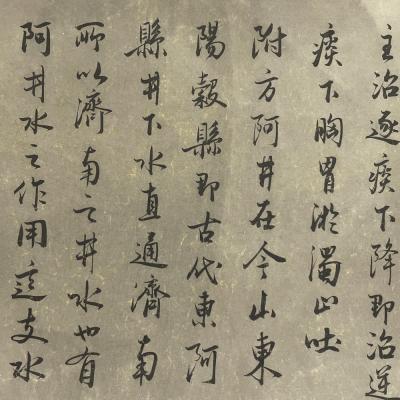 主治逐痰下降即治逆
痰下胸胃淤濁止吐
附方阿井在今山東
陽穀縣即古代東阿
縣井下水直通濟南
所以濟南之井水也有
阿井水之作用這支水